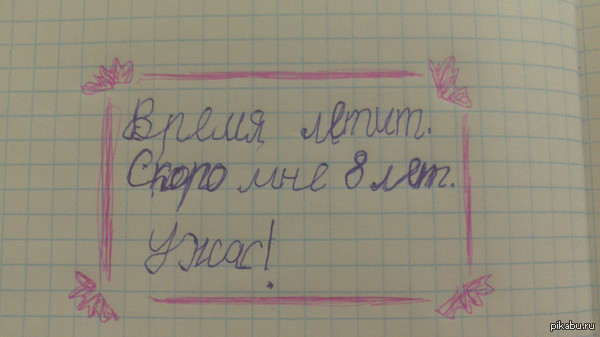 Время летит.
Скоро мне 8 лет.
Ужас!
pikabu.ru